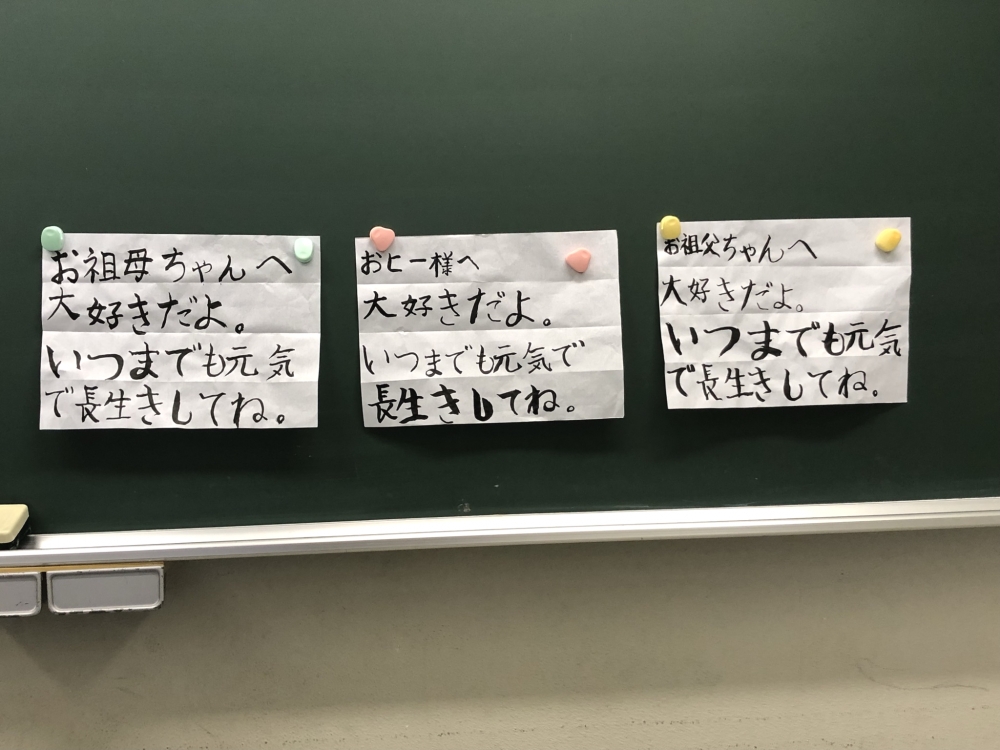 お祖母ちゃんへ
大好きだよ。
いつまでも元気
で長生きしてね。
おヒー様へ
大好きだよ。
いつまでも元気で
長生きしてね。
お祖父ちゃんへ
大好きだよ。
いつまでも元気
で長生きしてね。